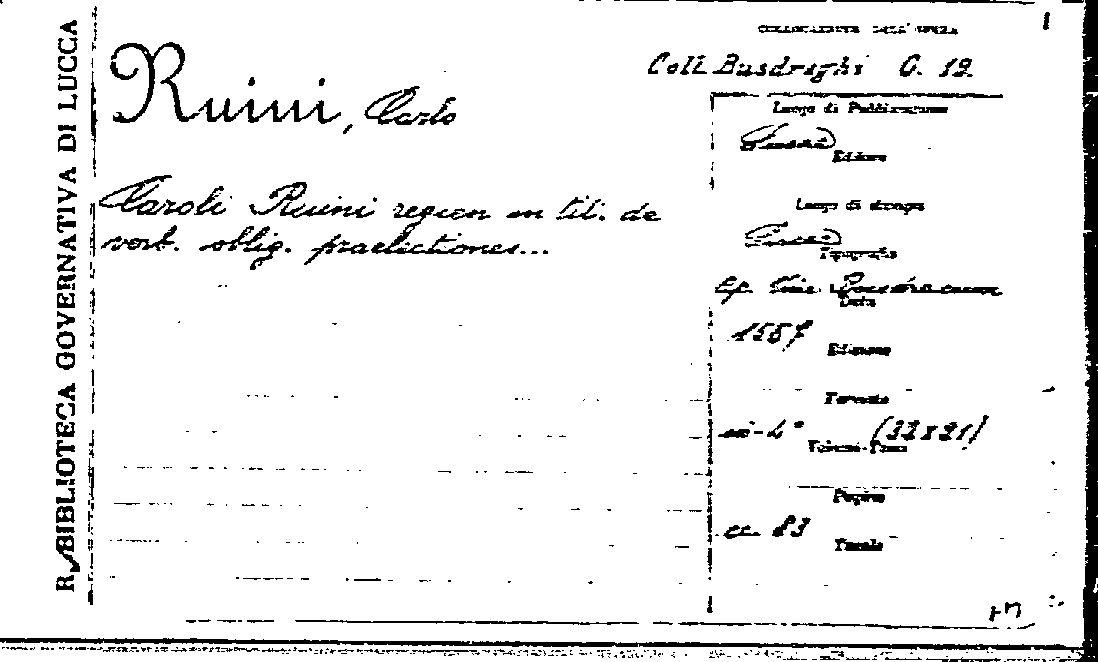 R. BIBLIOTECA GOVERNATIVA DI LUCCA
COLLOCAZIONE DELL'OPERA
Coll. Busdraghi C. 19.
Ruini, Carlo
Caroli Ruini regien in tit. de
verb. oblig. praelectiones...
Luogo di Pubblicazione
Lucca
Editore
Luogo di stampa
Lucca
Tipografia
ap. Vinc. Busdracum
Data
1557
Edizione
Formato
in-4° (32x21)
Volumi-Tomi
Pagine
cc. 83
Tavole